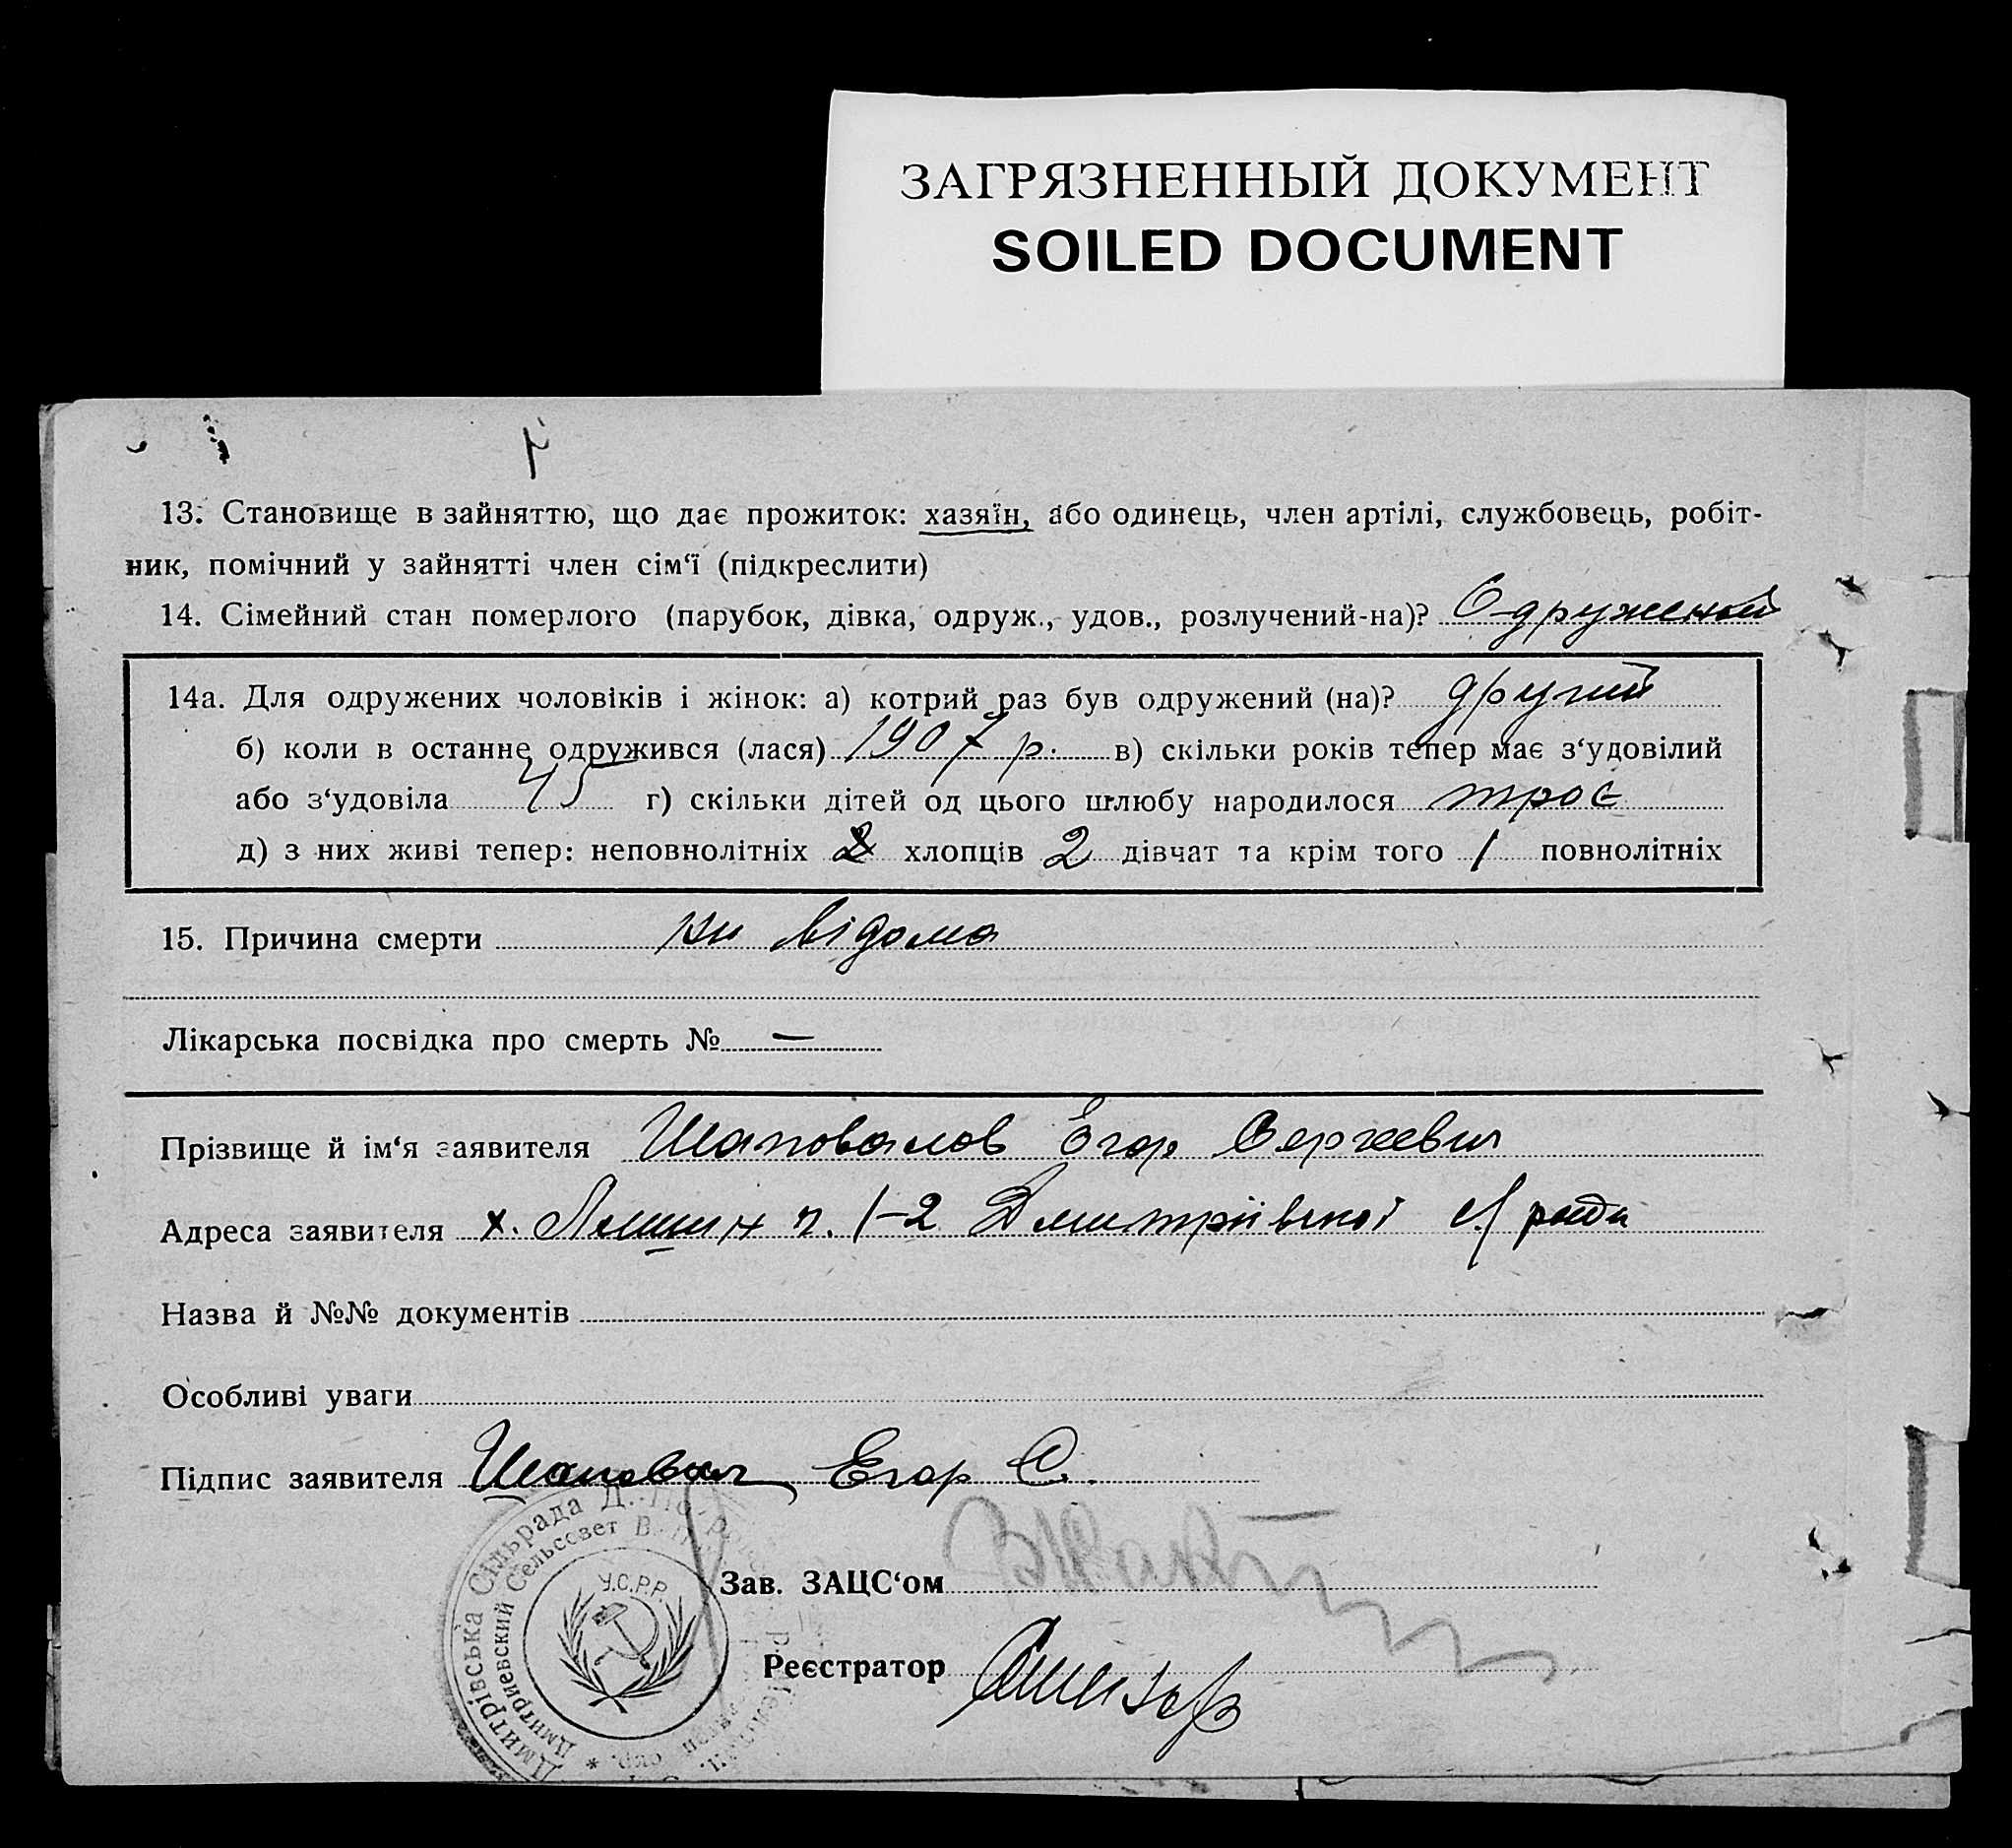 ЗАГРЯЗНЕННЫЙ ДОКУМЕНТ
SOILED DOCUMENT
13. Становище в зайняттю, що дає прожиток: хазяїн, або одинець, член артілі, службовець, робіт-
ник, помічний у зайнятті член сім‘ї (підкреслити)
14. Сімейний стан померлого (парубок, дівка, одруж., удов., розлучений-на)? Одружений
14а. Для одружених чоловіків і жінок: а) котрий раз був одружений (на)? другий
б) коли в останнє одружився (лася) 1907 р. в) скільки років тепер має з‘удовілий
або з‘удовіла 45 г) скільки дітей од цього шлюбу народилося троє
д) з них живі тепер: неповнолітніх хлопців 2 дівчат та крім того 1 повнолітніх
15. Причина смерти ни відома
Лікарська посвідка про смерть № —
Прізвище й ім‘я заявителя Шаповалов Егор Сергеевич
Адреса заявителя х. 1-2 Дмитріівської с/ради
Назва й №№ документів
Особливі уваги
Підпис заявителя Шаповал Егор С.
Дмитрівська Сільрада
Дмитриевский Сельсовет
У.С.Р.Р.
Зав. ЗАЦС‘ом
Реєстратор